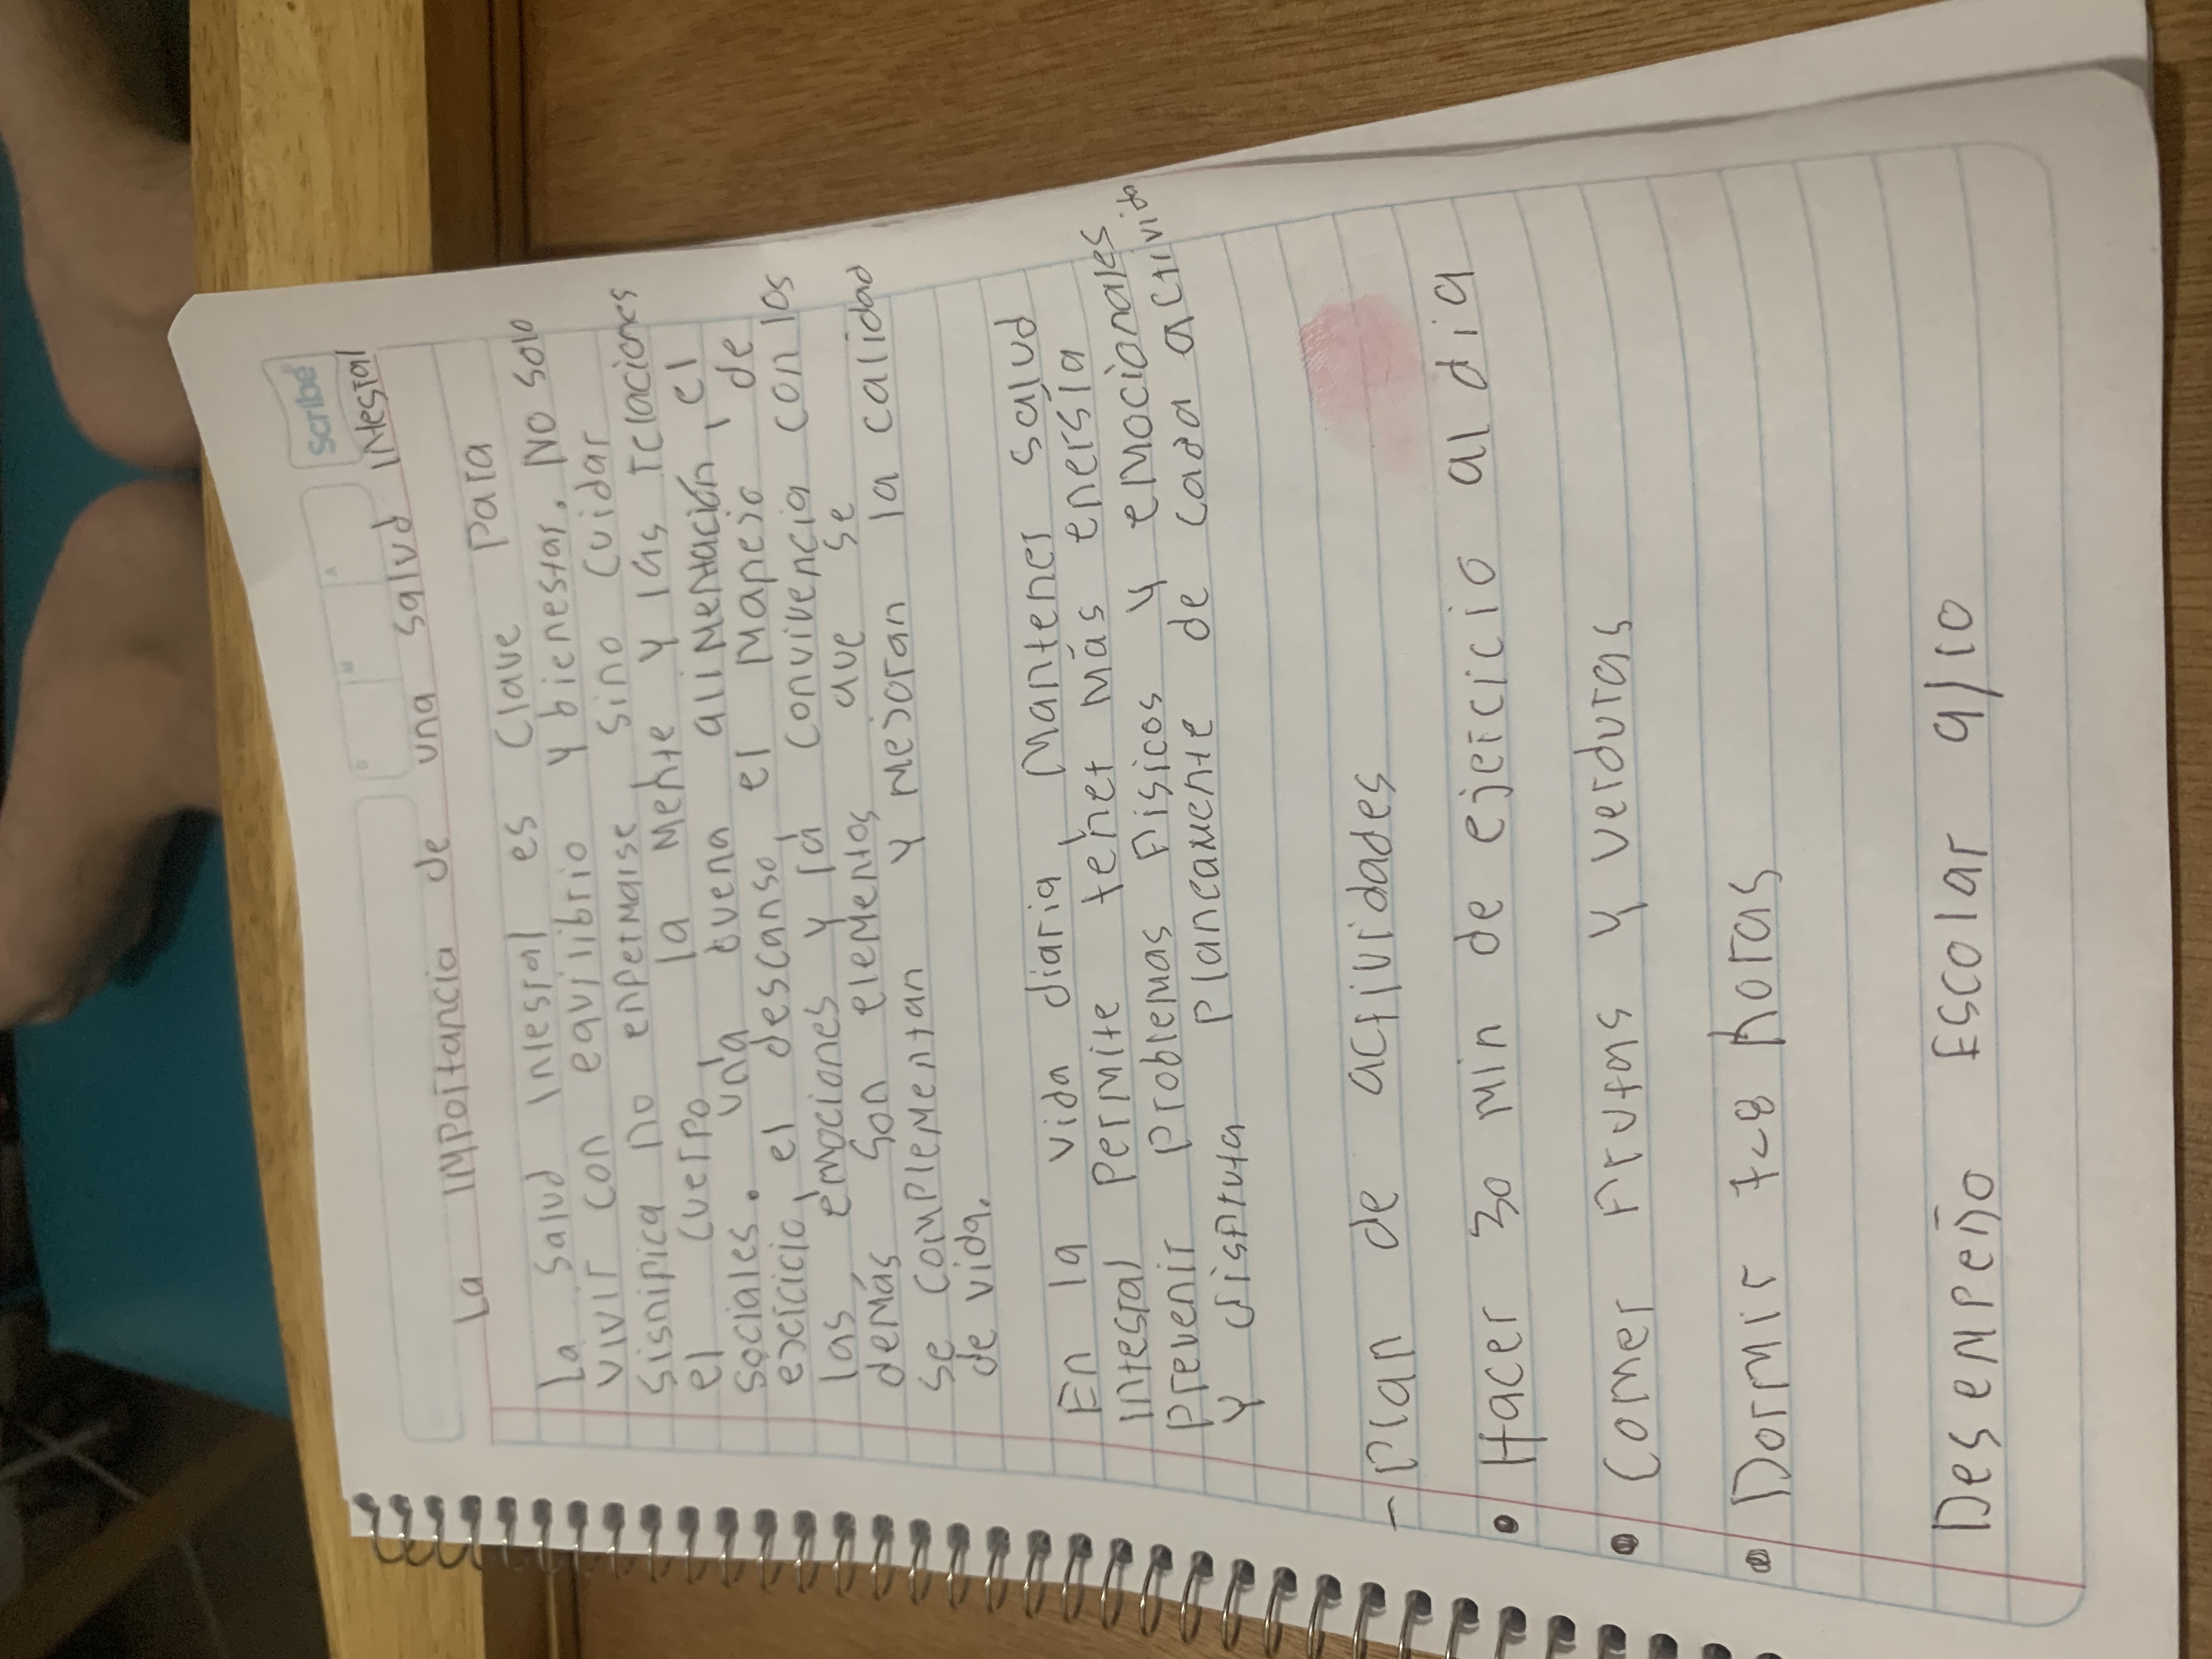 Scribe
D M A
La importancia de una salud integral
La salud integral es clave para
vivir con equilibrio y bienestar. No solo
significa no enfermarse sino cuidar
el cuerpo, la mente y las relaciones
sociales. una buena alimentación, el
exicicio, el descanso el manejo de
las emociones y la convivencia con los
demás son elementos que se
se complementan y mejoran la calidad
de vida.
En la vida diaria, mantener salud
integral permite tener más energía
prevenir problemas fisicos y emocionales
y disfruta plancamente de cada activida
- Plan de actividades
• Hacer 30 min de ejercicio al dia
• Comer frutas y verduras
• Dormir 7-8 horas
Desempeño Escolar 9/10